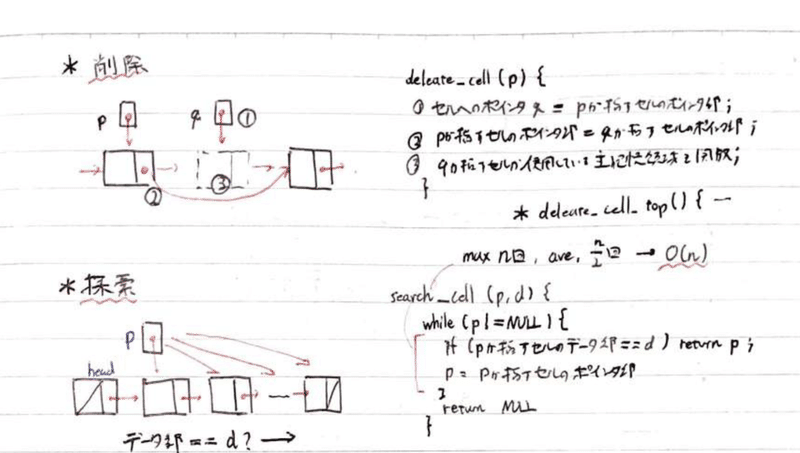 * 削除
p
q ①
②
③
deleate_cell (p) {
① セルへのポインタ q = pが指すセルのポインタ部;
② pが指すセルのポインタ部 = qが指すセルのポインタ部;
③ qが指すセルが使用している主記憶領域を開放;
}
* deleate_cell_top() { ―
max n回, ave, n/2回 → O(n)
* 探索
P
head
データ部 == d? →
search_cell (p,d) {
while (p!=NULL) {
if (pが指すセルのデータ部==d) return p;
p = pが指すセルのポインタ部
}
return NULL
}